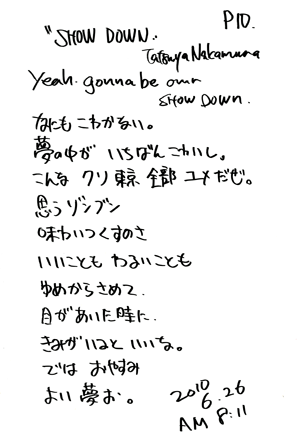 "SHOW DOWN" P10.
Tatsuya Nakamura
Yeah. gonna be our
SHOW DOWN.
なにも こわかない。
夢の中が いちばんこわいし。
こんな クソ東京 全部 ユメだぜ。
思うゾンブン
味わいつくすのさ
いいことも わるいことも
ゆめからさめて.
目があいた時に.
きみがいると いいな。
では おやすみ
よい 夢お。
2010
6.26
AM 8:11